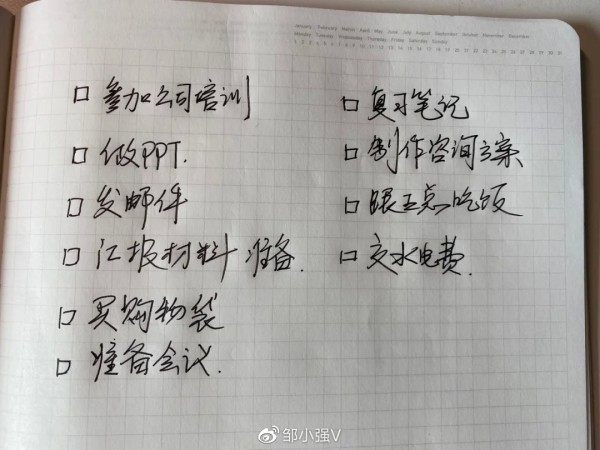 January February March April May June July August September October November December
Monday Tuesday Wednesday Thursday Friday Saturday Sunday
1 2 3 4 5 6 7 8 9 10 11 12 13 14 15 16 17 18 19 20 21 22 23 24 25 26 27 28 29 30 31
参加公司培训
做PPT.
发邮件
汇报材料准备.
买购物袋
准备会议.
复习笔记
制作咨询方案
跟王总吃饭
交水电费.
邹小强V